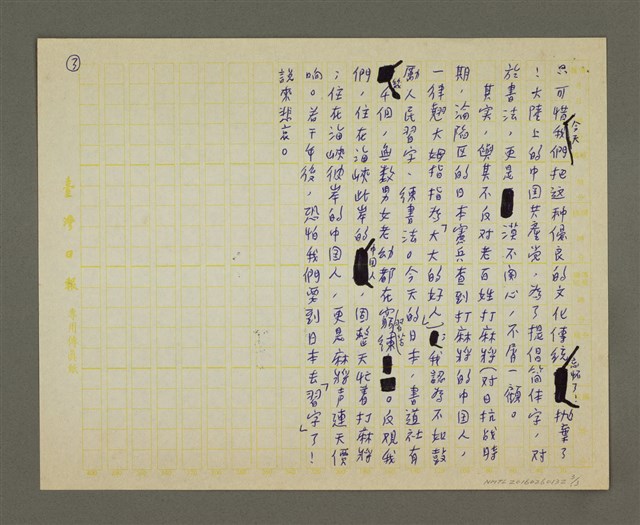 ③
只可惜我們今天把这种優良的文化傳統忘懷了！抛棄了
！大陸上的中国共產党，為了提倡简体字，对
於書法，更是漠不関心，不屑一顧。
其实，與其不反対老百姓打麻將（对日抗战時
期，淪陷区的日本憲兵查到打麻將的中国人，
一律翹大姆指指為「大大的好人」；我認為不如鼓
勵人民習字、練書法。今天的日本，書道社有
千個，無数男女老幼都在窮練習字。反观我
們，住在海峽此岸的中国人，固整天忙着打麻將
；住在海峽彼岸的中国人，更是麻將声連天價
响。若干年後，恐怕我們要到日本去「習字」了！
說來悲哀。
臺灣日報
專用稿紙
NMTL20160260132 3/3